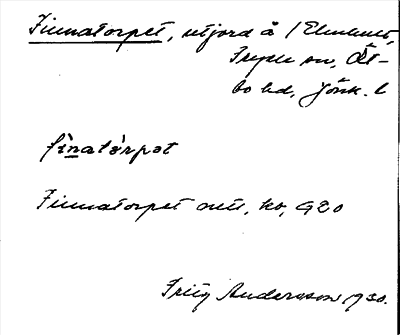 Finnatorpet, utjord å /Ekelunet,
Tryde sn, Öst-
bo hd, Jönk. l
fìnatórpət
Finnatorpet outt. kb, G20
Fritz Andersson 1930.